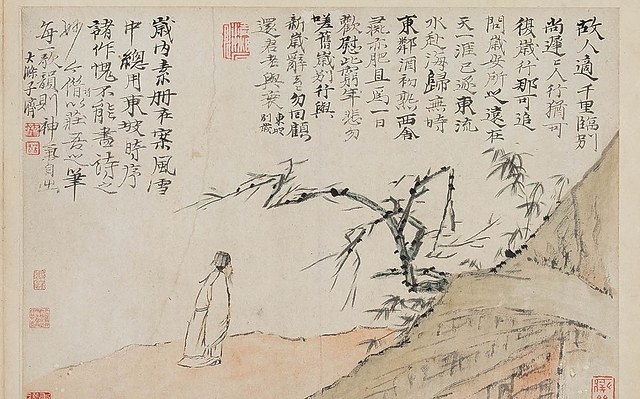 故人適千里臨別
尚遲〻人行猶可
復歲行那可追
問歲安所之遠在
天一涯已逐東流
水赴海歸無時
東鄰酒初熟西舍
彘亦肥且爲一日
歡慰此窮年悲勿
嗟舊歲別行與
新歲辭去〻勿回顧
還君老與衰
東坡
別歲
歲內素冊在案風雪
中總用東坡時序
諸作愧不能盡詩之
妙借以莊吾筆
每一歌頌則神氣自出
大滌子濟